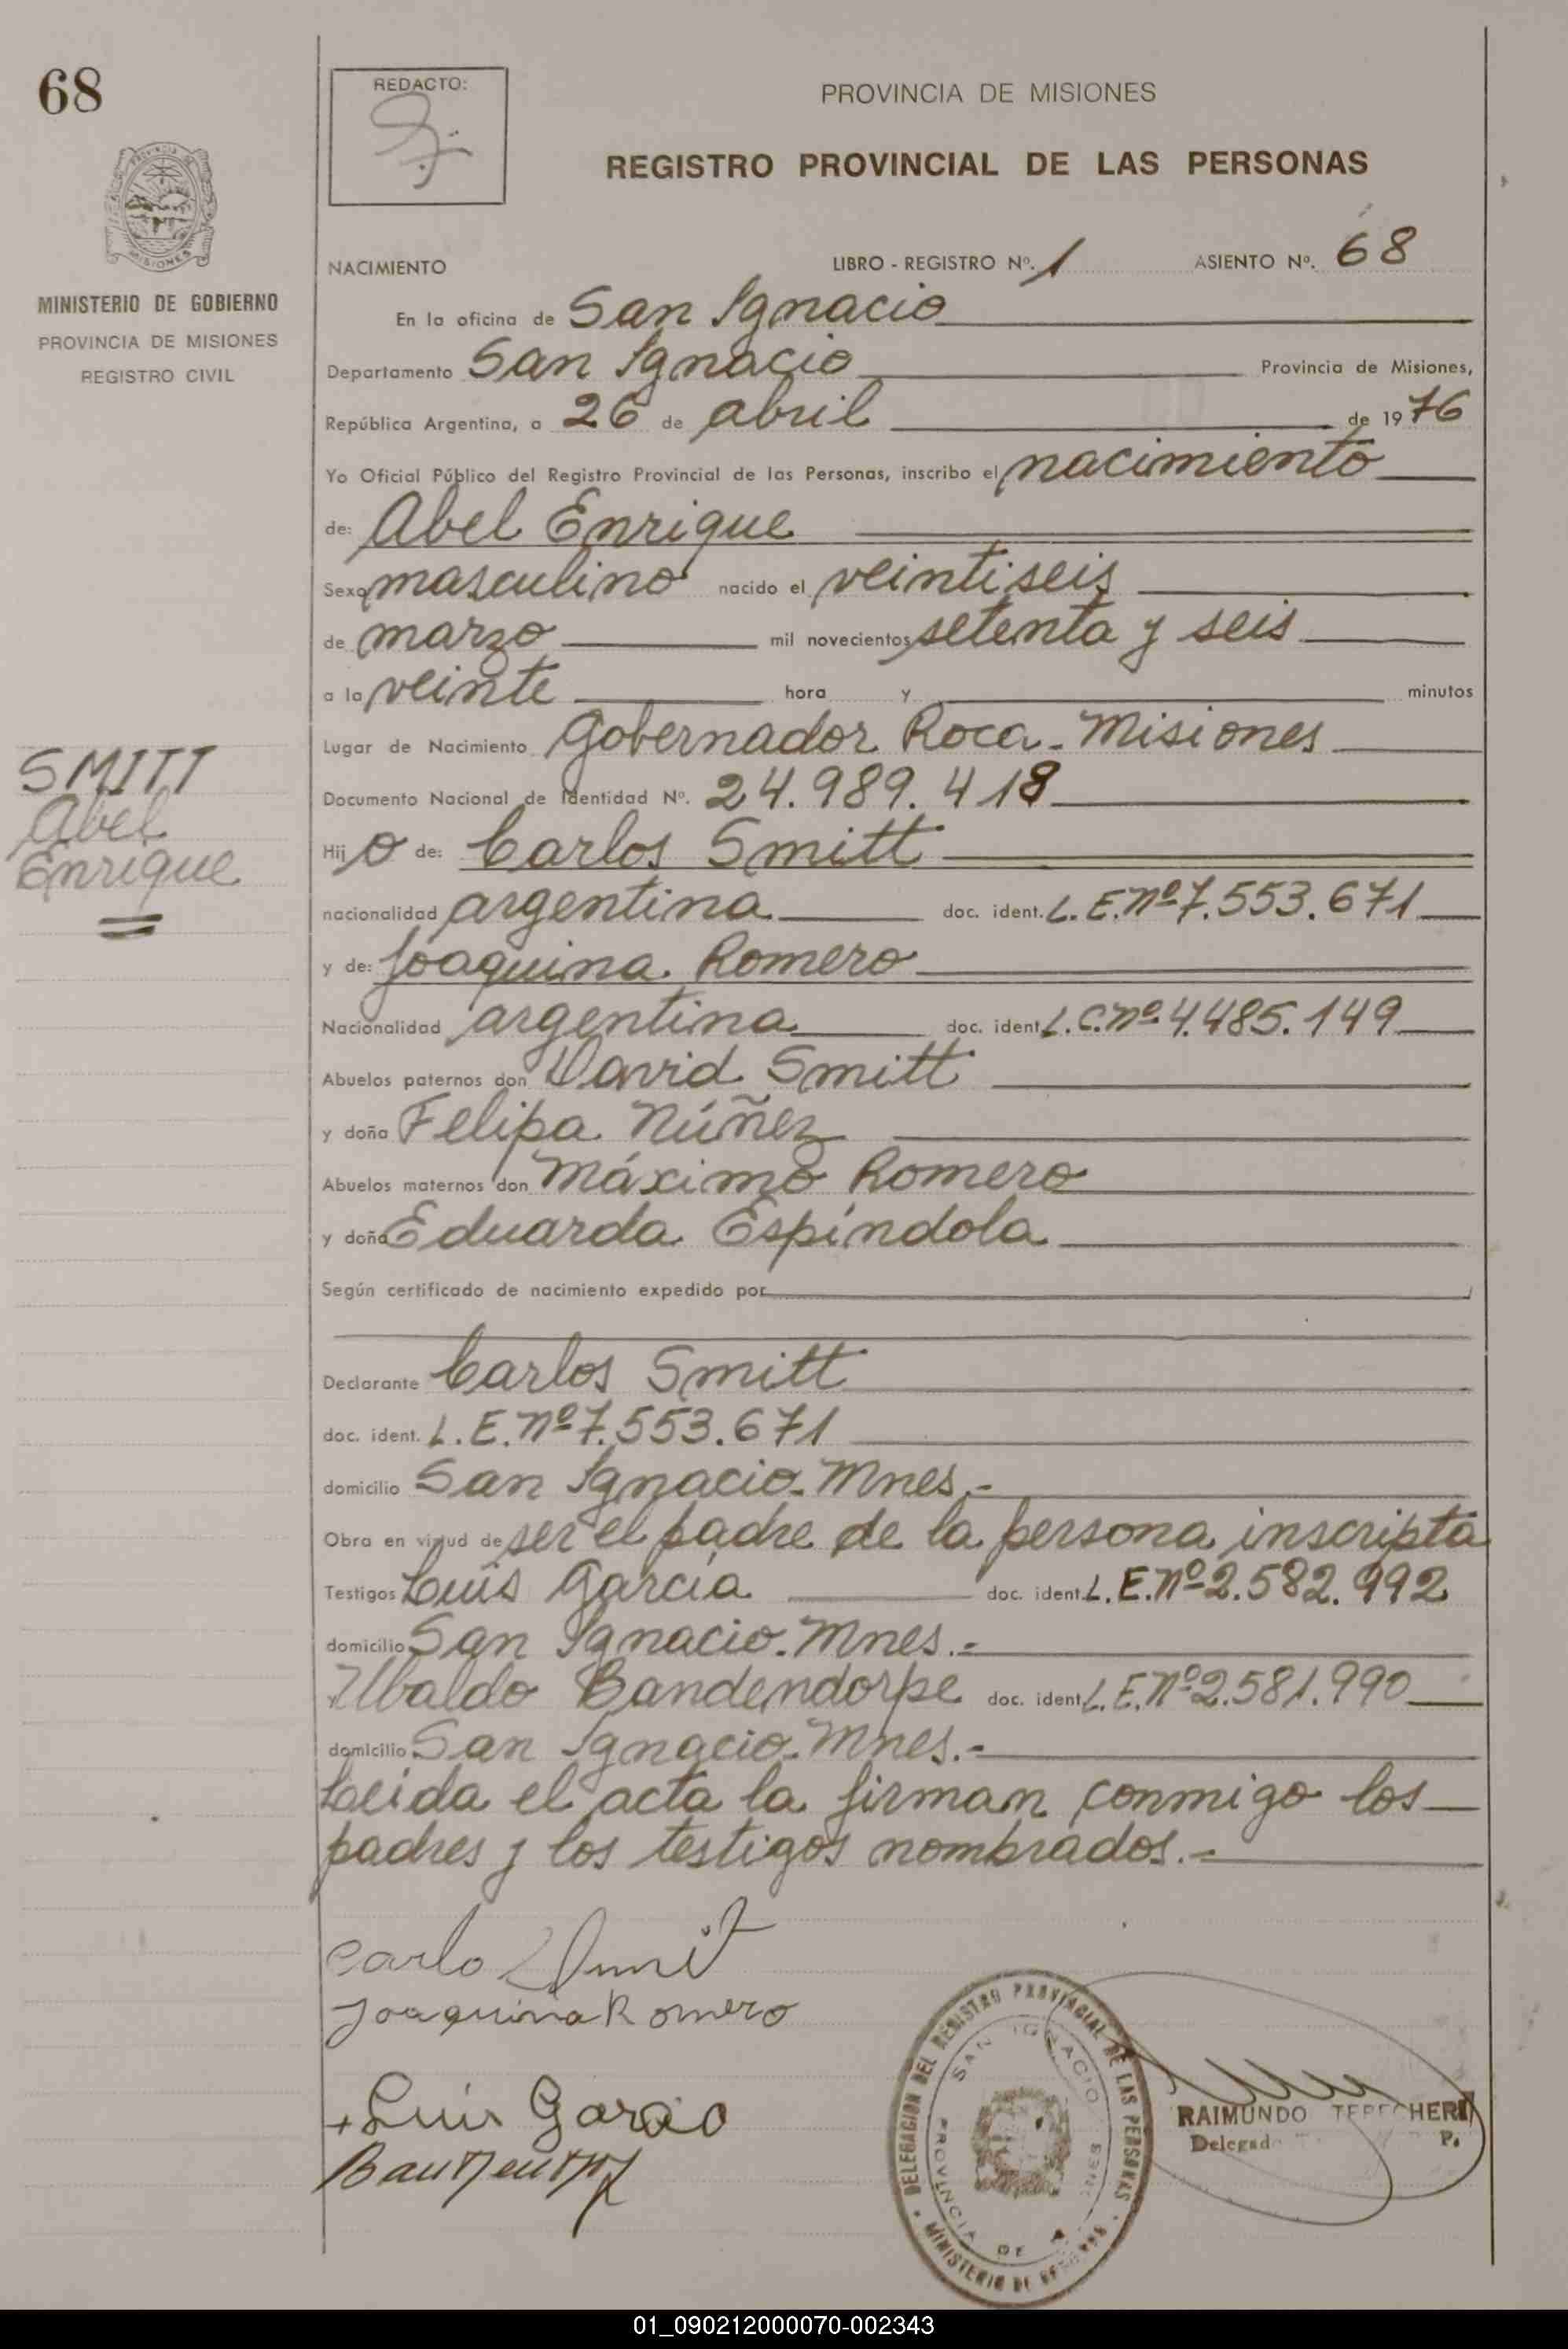 68
REDACTO:
PROVINCIA DE MISIONES
REGISTRO PROVINCIAL DE LAS PERSONAS
PROVINCIA DE
MISIONES
MINISTERIO DE GOBIERNO
PROVINCIA DE MISIONES
REGISTRO CIVIL
NACIMIENTO LIBRO - REGISTRO Nº. 1 ASIENTO Nº. 68
En la oficina de San Ignacio
Departamento San Ignacio Provincia de Misiones,
República Argentina, a 26 de abril de 1976
Yo Oficial Público del Registro Provincial de las Personas, inscribo el nacimiento
de: Abel Enrique
Sexo masculino nacido el veintiseis
de marzo mil novecientos setenta y seis
a la veinte hora y minutos
Lugar de Nacimiento Gobernador Roca - Misiones
SMITT
Abel
Enrique
Documento Nacional de Identidad Nº. 24.989.418
Hijo de: Carlos Smitt
nacionalidad argentina doc. ident. L.E.nº 7.553.671
y de: Joaquina Romero
Nacionalidad argentina doc. ident. L.C.nº 4.485.149
Abuelos paternos don David Smitt
y doña Felipa Núñez
Abuelos maternos don Máximo Romero
y doña Eduarda Espíndola
Según certificado de nacimiento expedido por
Declarante Carlos Smitt
doc. ident. L.E.nº 7.553.671
domicilio San Ignacio - Mnes.-
Obra en virtud de ser el padre de la persona inscripta
Testigos Luis García doc. ident. L.E.nº 2.582.992
domicilio San Ignacio - Mnes.-
Ubaldo Bandendorpe doc. ident. L.E.nº 2.581.990
domicilio San Ignacio - Mnes.-
Leida el acta la firman conmigo los
padres y los testigos nombrados.-
Carlo Smit
Joaquina Romero
Luis Garcia
DELEGACION DEL REGISTRO PROVINCIAL DE LAS PERSONAS
SAN IGNACIO
PROVINCIA DE
MINISTERIO DE
RAIMUNDO
01_090212000070-002343